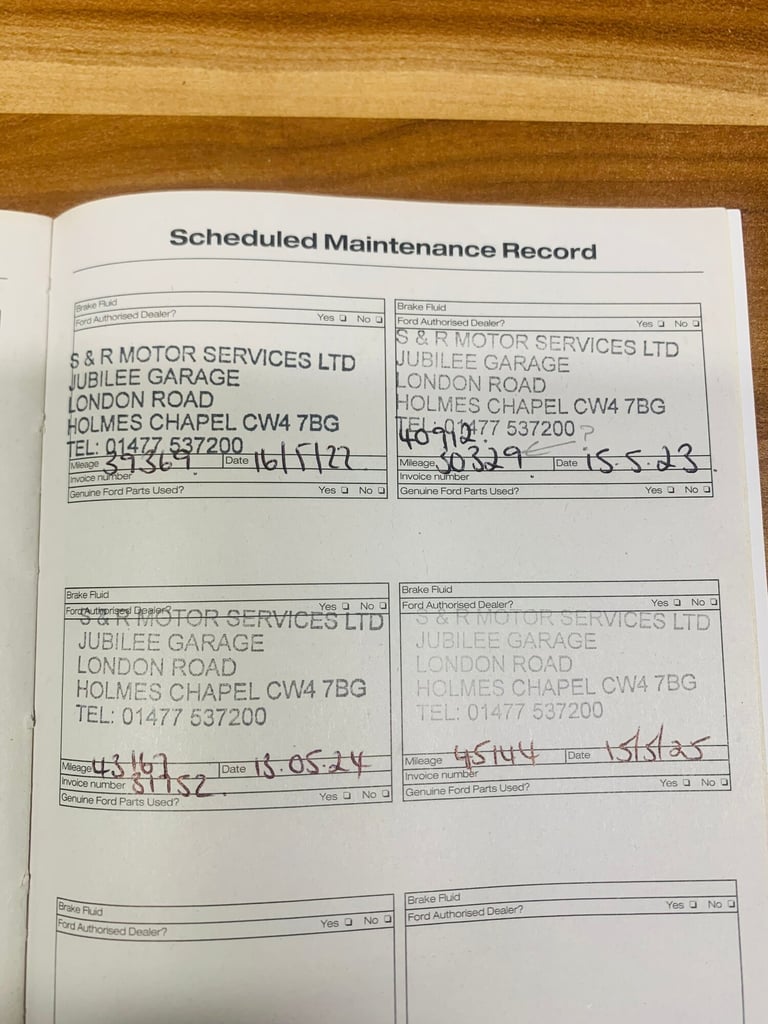 Scheduled Maintenance Record
Brake Fluid
Ford Authorised Dealer? Yes No
S & R MOTOR SERVICES LTD
JUBILEE GARAGE
LONDON ROAD
HOLMES CHAPEL CW4 7BG
TEL: 01477 537200
Mileage 39369 Date 16/5/22
Invoice number
Genuine Ford Parts Used? Yes No
Brake Fluid
Ford Authorised Dealer? Yes No
S & R MOTOR SERVICES LTD
JUBILEE GARAGE
LONDON ROAD
HOLMES CHAPEL CW4 7BG
TEL: 01477 537200 ?
40912.
Mileage 30329 Date 15.5.23
Invoice number
Genuine Ford Parts Used? Yes No
Brake Fluid
Ford Authorised Dealer? Yes No
S & R MOTOR SERVICES LTD
JUBILEE GARAGE
LONDON ROAD
HOLMES CHAPEL CW4 7BG
TEL: 01477 537200
Mileage 43167 Date 13.05.24
Invoice number 31752.
Genuine Ford Parts Used? Yes No
Brake Fluid
Ford Authorised Dealer? Yes No
S & R MOTOR SERVICES LTD
JUBILEE GARAGE
LONDON ROAD
HOLMES CHAPEL CW4 7BG
TEL: 01477 537200
Mileage 45144 Date 15/5/25
Invoice number
Genuine Ford Parts Used? Yes No
Brake Fluid
Ford Authorised Dealer? Yes No
Brake Fluid
Ford Authorised Dealer? Yes No